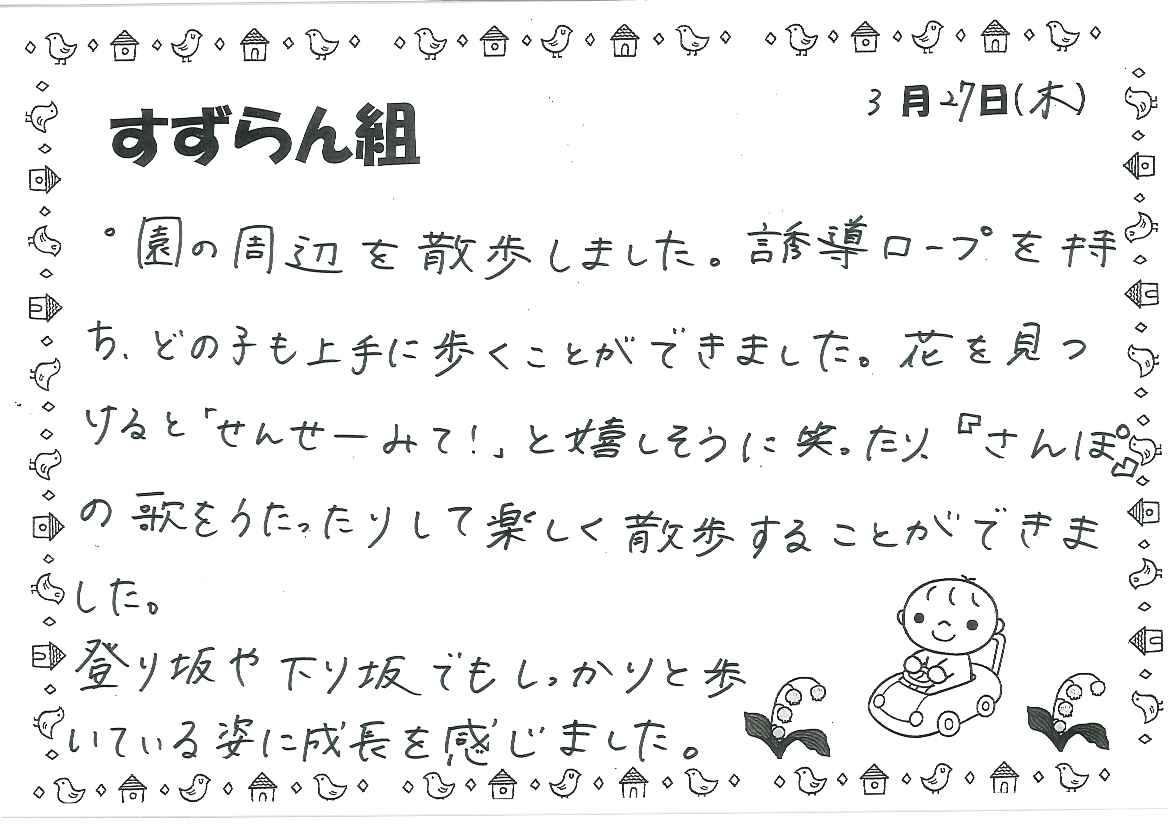 3月27日(木)
すずらん組
・園の周辺を散歩しました。誘導ロープを持
ち、どの子も上手に歩くことができました。花を見つ
けると「せんせーみて!」と嬉しそうに笑ったり、『さんぽ』
の歌をうたったりして楽しく散歩することができま
した。
登り坂や下り坂でもしっかりと歩
いている姿に成長を感じました。